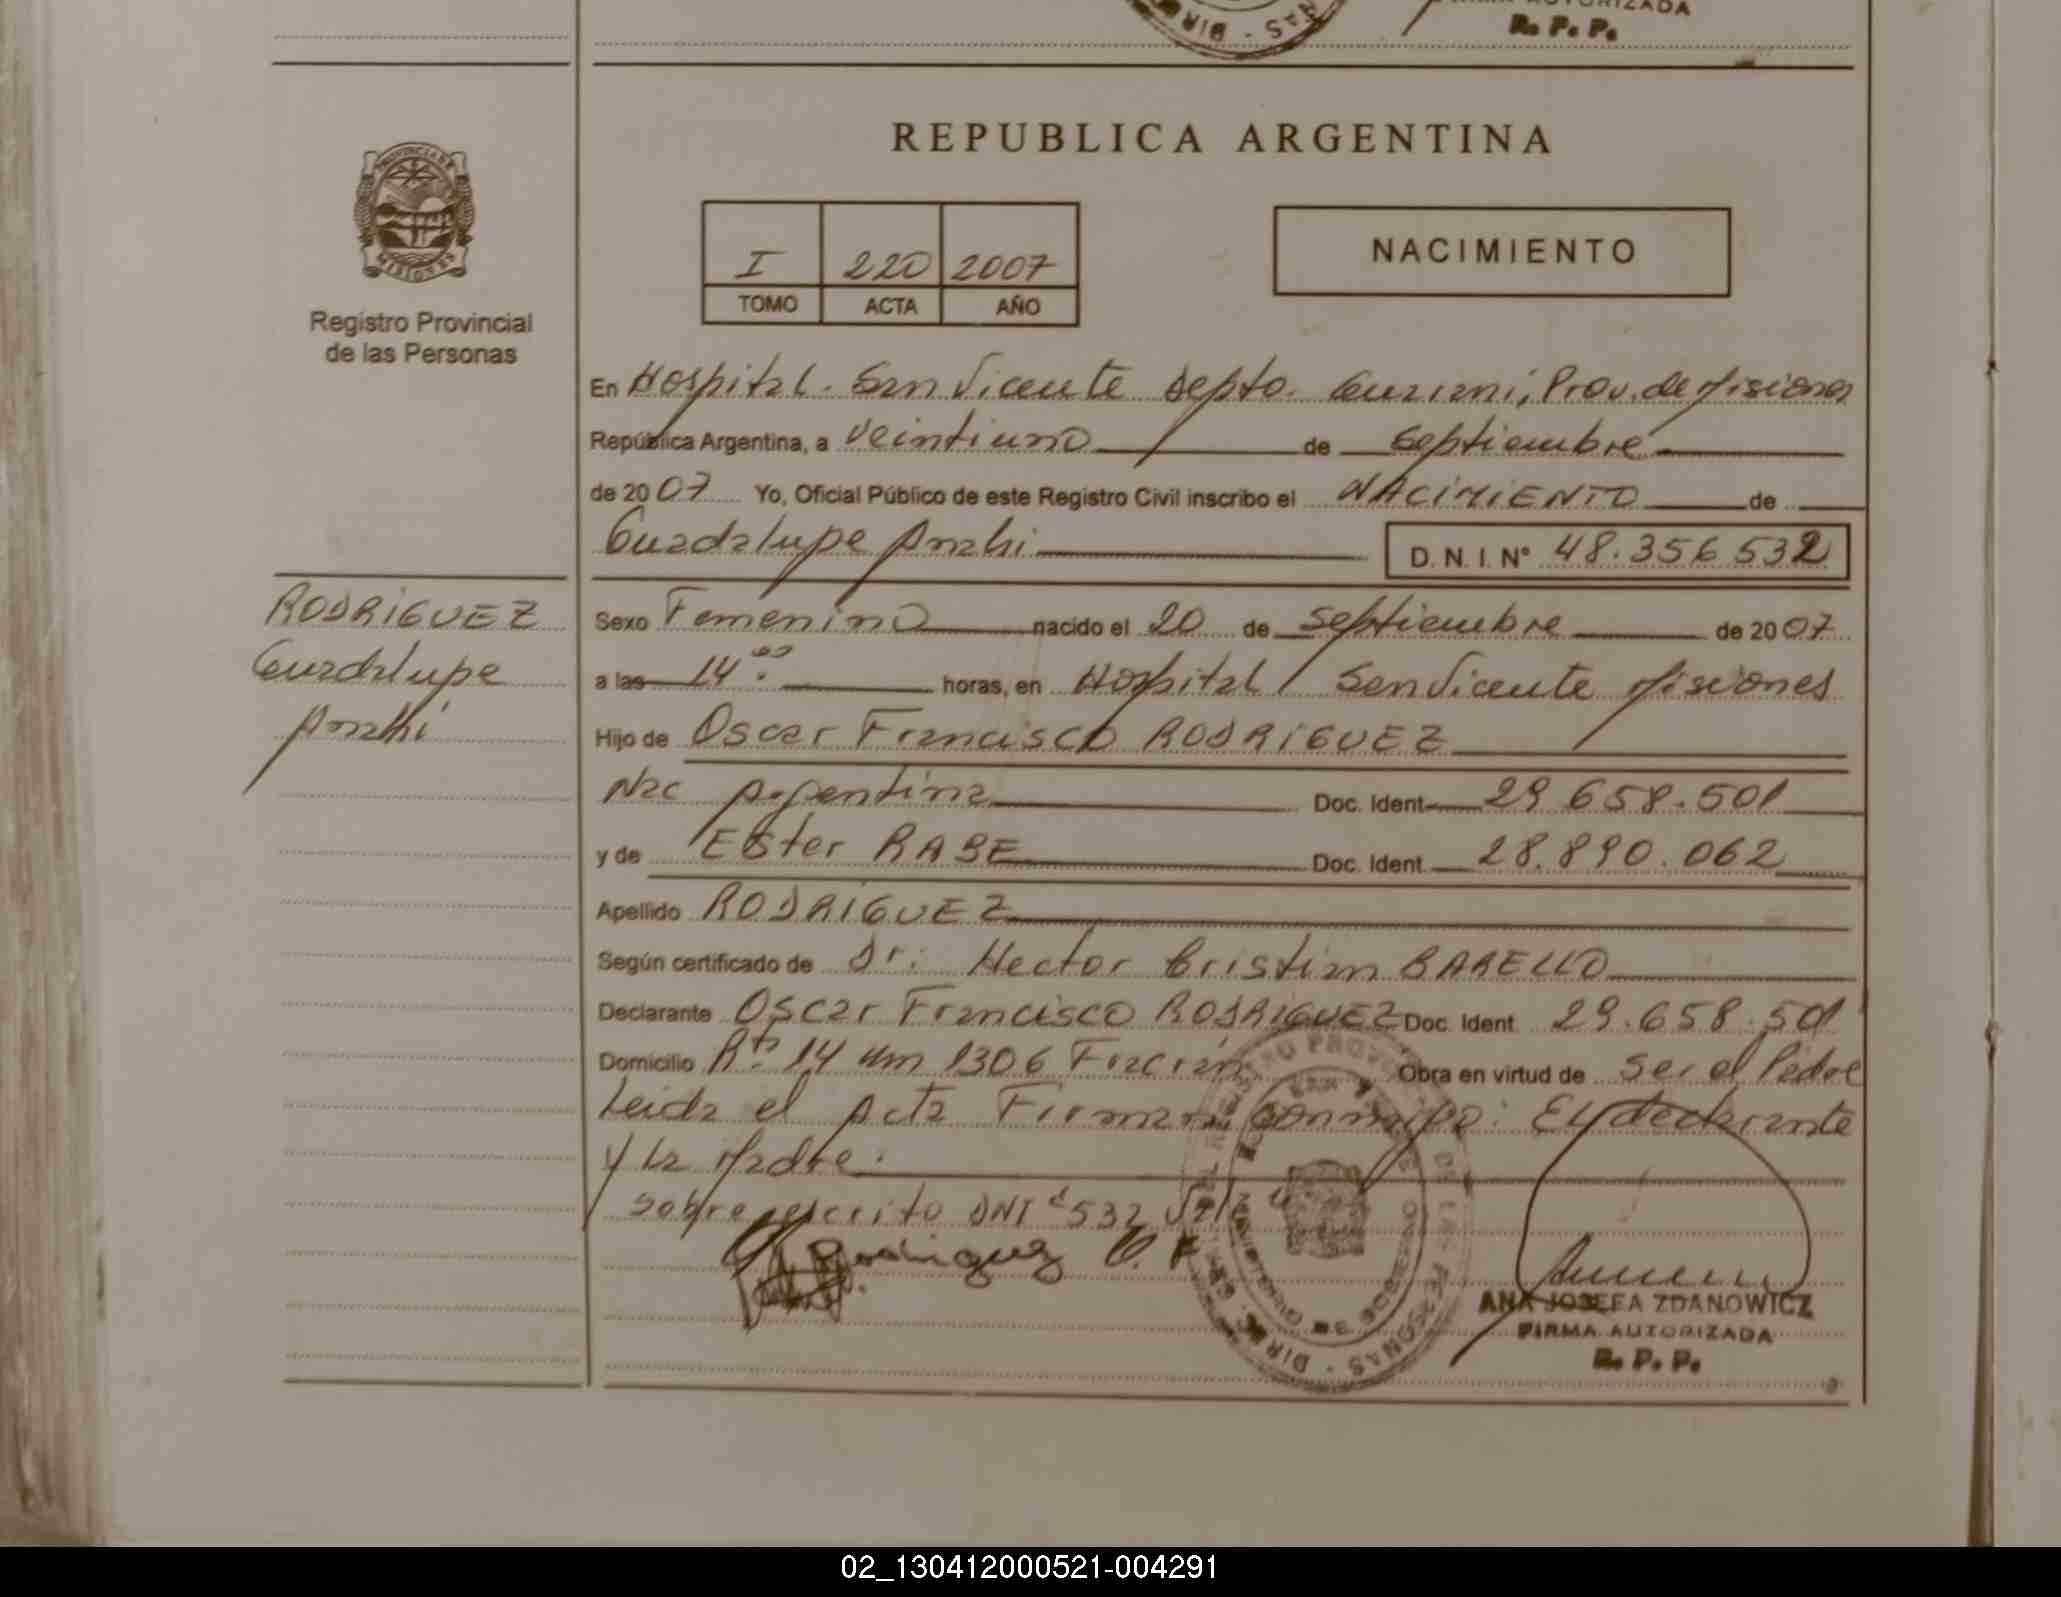 FIRMA AUTORIZADA
R. P. P.
REPUBLICA ARGENTINA
PROVINCIA DE
MISIONES
Registro Provincial
de las Personas
I 220 2007
TOMO ACTA AÑO
NACIMIENTO
En Hospital. San Vicente Depto. Guarani, Prov. de Misiones
República Argentina, a Veintiuno de Septiembre
de 2007 Yo, Oficial Público de este Registro Civil inscribo el NACIMIENTO de
Guadalupe Anahi D. N. I. N° 48.356.532
RODRIGUEZ
Guadalupe
Anahi
Sexo Femenino nacido el 20 de Septiembre de 2007
a las 14.00 horas, en Hospital San Vicente Misiones
Hijo de Oscar Francisco RODRIGUEZ
Nac Argentina Doc. Ident 29.658.501
y de Ester RABE Doc. Ident. 28.890.062
Apellido RODRIGUEZ
Según certificado de Dr. Hector Cristian BARELLO
Declarante Oscar Francisco RODRIGUEZ Doc. Ident 29.658.501
Domicilio Rta. 14 Km 1306 Fracrán Obra en virtud de ser el Padre
Leida el Acta Firman conmigo: El declarante
y la Madre.
sobre escrito DNI "532 Vale"
Rodriguez O. F
ANA JOSEFA ZDANOWICZ
FIRMA AUTORIZADA
R. P. P.
02_130412000521-004291